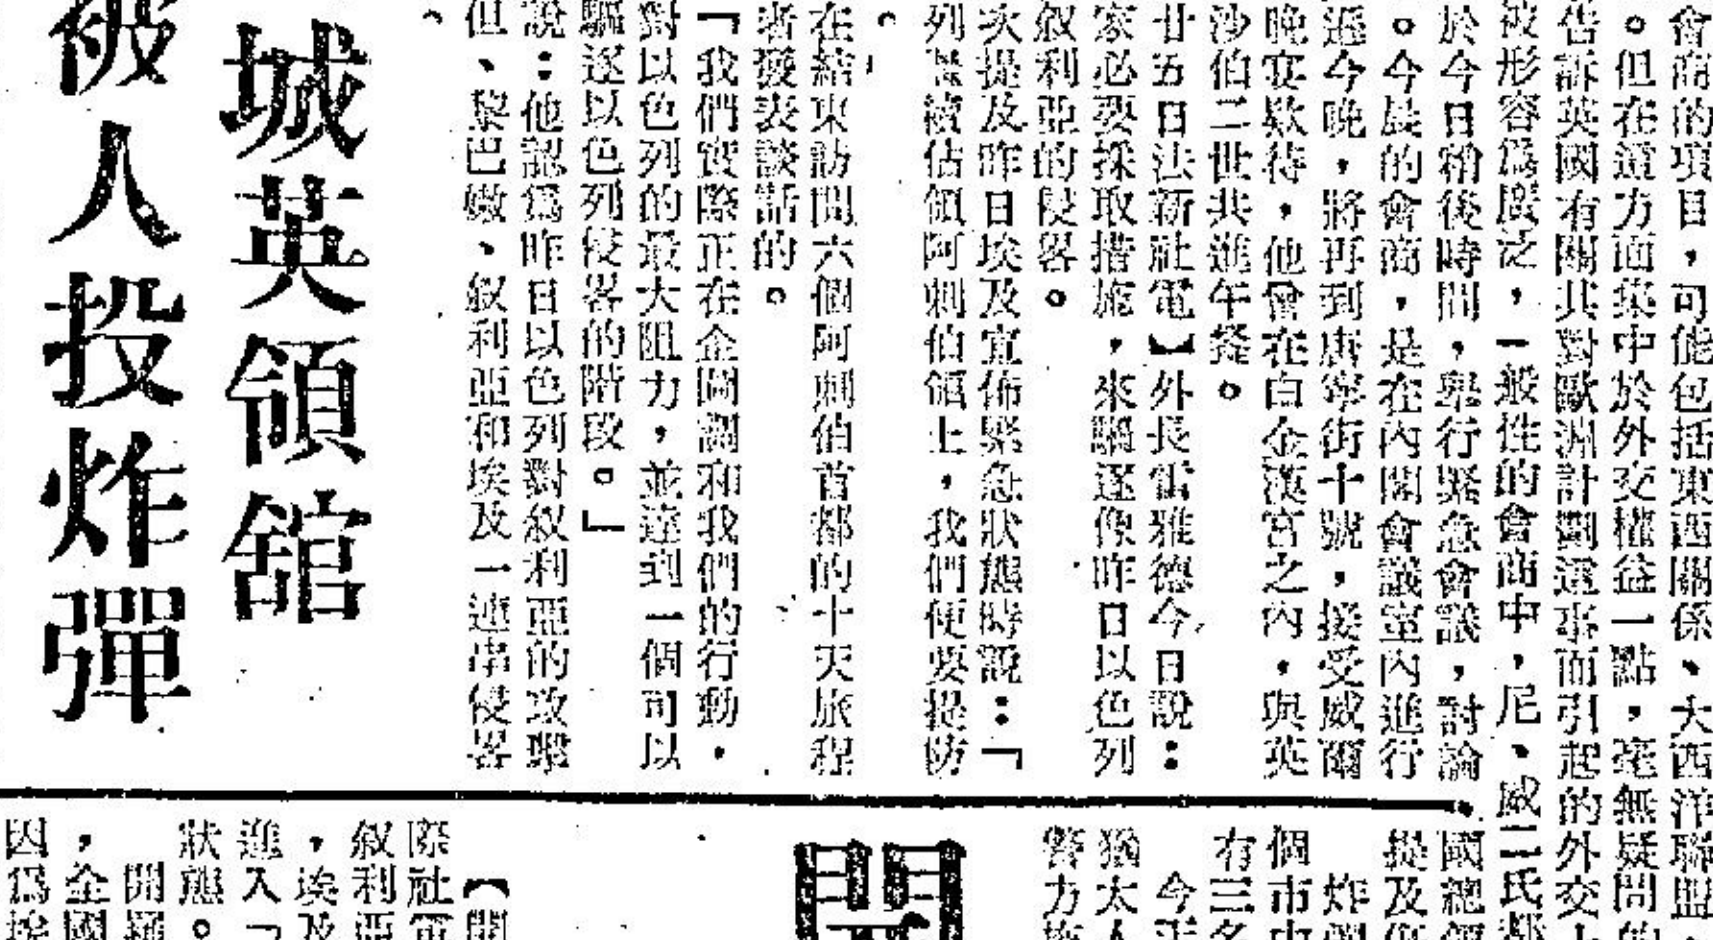 會商的項目，可能包括東西關係、大西洋聯盟、
。但在這方面集中於外交權益一點，毫無疑問的
告訴英國有關其對歐洲計劃這事而引起的外交上
被形容爲廣泛，一般性的會商中，尼、威二氏都
於今日稍後時間，舉行緊急會議，討論
。今晨的會商，是在內閣會議室內進行
遜今晚，將再到唐寧街十號，接受威爾
晚宴欵待，他會在白金漢宮之內，與英
沙伯二世共進午餐。
廿五日法新社電】外長雷雅德今日說：
家必要採取措施，來驅逐像昨日以色列
叙利亞的侵畧。
次提及昨日埃及宣佈緊急狀態時說：「
列繼續佔領阿刺伯領土，我們便要提防
。
在結束訪問六個阿刺伯首都的十天旅程
者發表談話的。
「我們實際正在企圖調和我們的行動，
對以色列的最大阻力，並達到一個可以
驅逐以色列侵畧的階段。」
說：他認爲昨日以色列對叙利亞的攻擊
但、黎巴嫩、叙利亞和埃及一連串侵畧
、
城英領舘
被人投炸彈
國總領
提及復
炸彈
個市中
有三名
今
猶太人
警方
開
【開
際社電
叙利亞
，埃及
進入「
狀態。
開羅
，全國
因爲埃